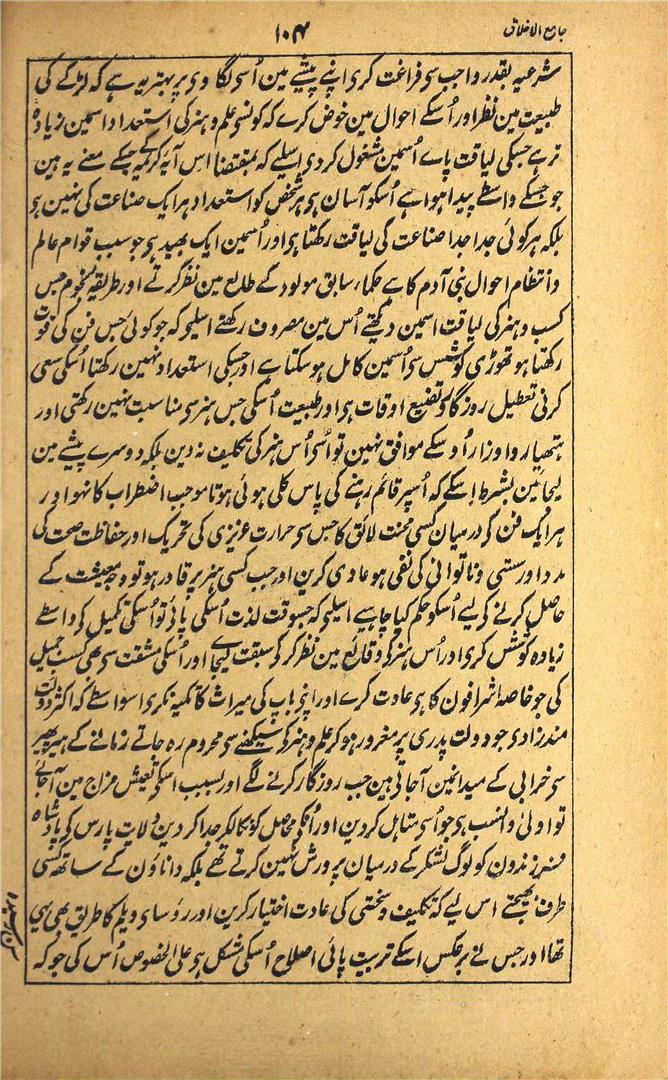 جامع الاخلاق
۱۰۴
شرعیہ بقدر واجب سی فراغت کری اپنے پیشے مین اُسی لگا وی پر بہتر یہ ہے کہ لڑکے کی
طبیعت مین نظر اور اُسکے احوال مین خوض کرے کہ کونسی علم و ہنر کی استعداد اسمین زیادہ
تر ہے جسکی لیاقت پاے اُسمین مشغول کر دی اسلیے کہ بمقتضا اس آیہ کریمہ کے جسکے معنے یہ ہین
جو جسکے واسطے پیدا ہوا ہے اُسکو آسان ہی ہر شخص کو استعداد ہر ایک صناعت کی نہین ہی
بلکہ ہر کوئی جدا جدا صناعت کی لیاقت رکھتا ہی اور اُسمین ایک بھید ہی جو سبب قوام عالم
و انتظام احوال بنی آدم کا ہے حکما سابق مولود کے طالع مین نظر کرتے اور طریقہ نجوم جس
کسب و ہنر کی لیاقت اسمین دیکھتے اُس مین مصروف رکھتے اسلیو کہ جو کوئی جس فن کی قوت
رکھتا ہو تھوڑی کوشش سی اُسمین کامل ہو سکتا ہے اور جسکی استعداد نہین رکھتا اُسکی سعی
کرنی تعطیل روزگار و تضیع اوقات ہی اور طبیعت اُسکی جس ہنر سی مناسبت نہین رکھتی اور
ہتھیار و اوزار اُسکے موافق نہین تو اُسی اُس ہنر کی تکلیف نہ دین بلکہ دوسرے پیشے مین
لیجائین بشرط اِسکے کہ اُسپر قائم رہنے کی پاس کلی ہوئی ہو تا موجب اضطراب کا نہو اور
ہر ایک فن کی درمیان کسی محنت لائق کا جس سی حرارت عزیزی کی تحریک اور حفاظت صحت کی
مدد اور سستی و ناتوانی کی نفی ہو عادی کرین اور جب کسی ہنر پر قادر ہو تو وجہ معیشت کے
حاصل کرنے کی لیے اُسکو حکم کیا چاہیے اسلیو کہ جسوقت لذت اُسکی پائی تو اُسکی تکمیل کی واسطے
زیادہ کوشش کری اور اُس ہنر کی وقائع مین نظر کر کر سبقت لیجاے اور اُسکی مشقت سی بھی کسب جمیل
کی جو خاصہ اشرافون کا ہی عادت کرے اور اپنی باپ کی میراث کا تکیہ نکری اسواسطے کہ اکثر دولت
مند زادی جو دولت پدری پر مغرور ہو کر علم و ہنر کی سیکھنے سی محروم رہ جاتے زمانے کے ہیر پھیر
سی خرابی کے میدانمین آ جاتی ہین جب روزگار کرنے لگے اور بسبب اسکی تعیش مزاج مین آ جائے
تو اولیٰ و انسب ہی جو اُسی متاہل کر دین اور اُسکی محاصل کو نکالکر جدا کر دین ولایت پارس کی بادشاہ
فرزندون کو لوگ لشکر کے درمیان پرورش نہین کرتے تھے بلکہ داناؤن کے ساتھ کسی
طرف بھیجتے اس لیے کہ تکلیف و سختی کی عادت اختیار کرین اور رؤسای ویلم کا طریق بھی یہی
تھا اور جس نے برعکس اسکے تربیت پائی اصلاح اُسکی مشکل ہی علی الخصوص اُس کی جو کہ